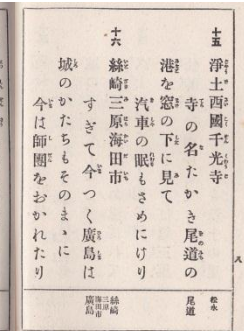 十五 淨土西國千光寺
寺の名たかき尾道の
港を窓の下に見て
汽車の眠もさめにけり
十六 絲崎三原海田市
すぎて今つく廣島は
城のかたちもそのまゝに
今は師團をおかれたり
松永
尾道
絲崎
三原
海田市
廣島
八